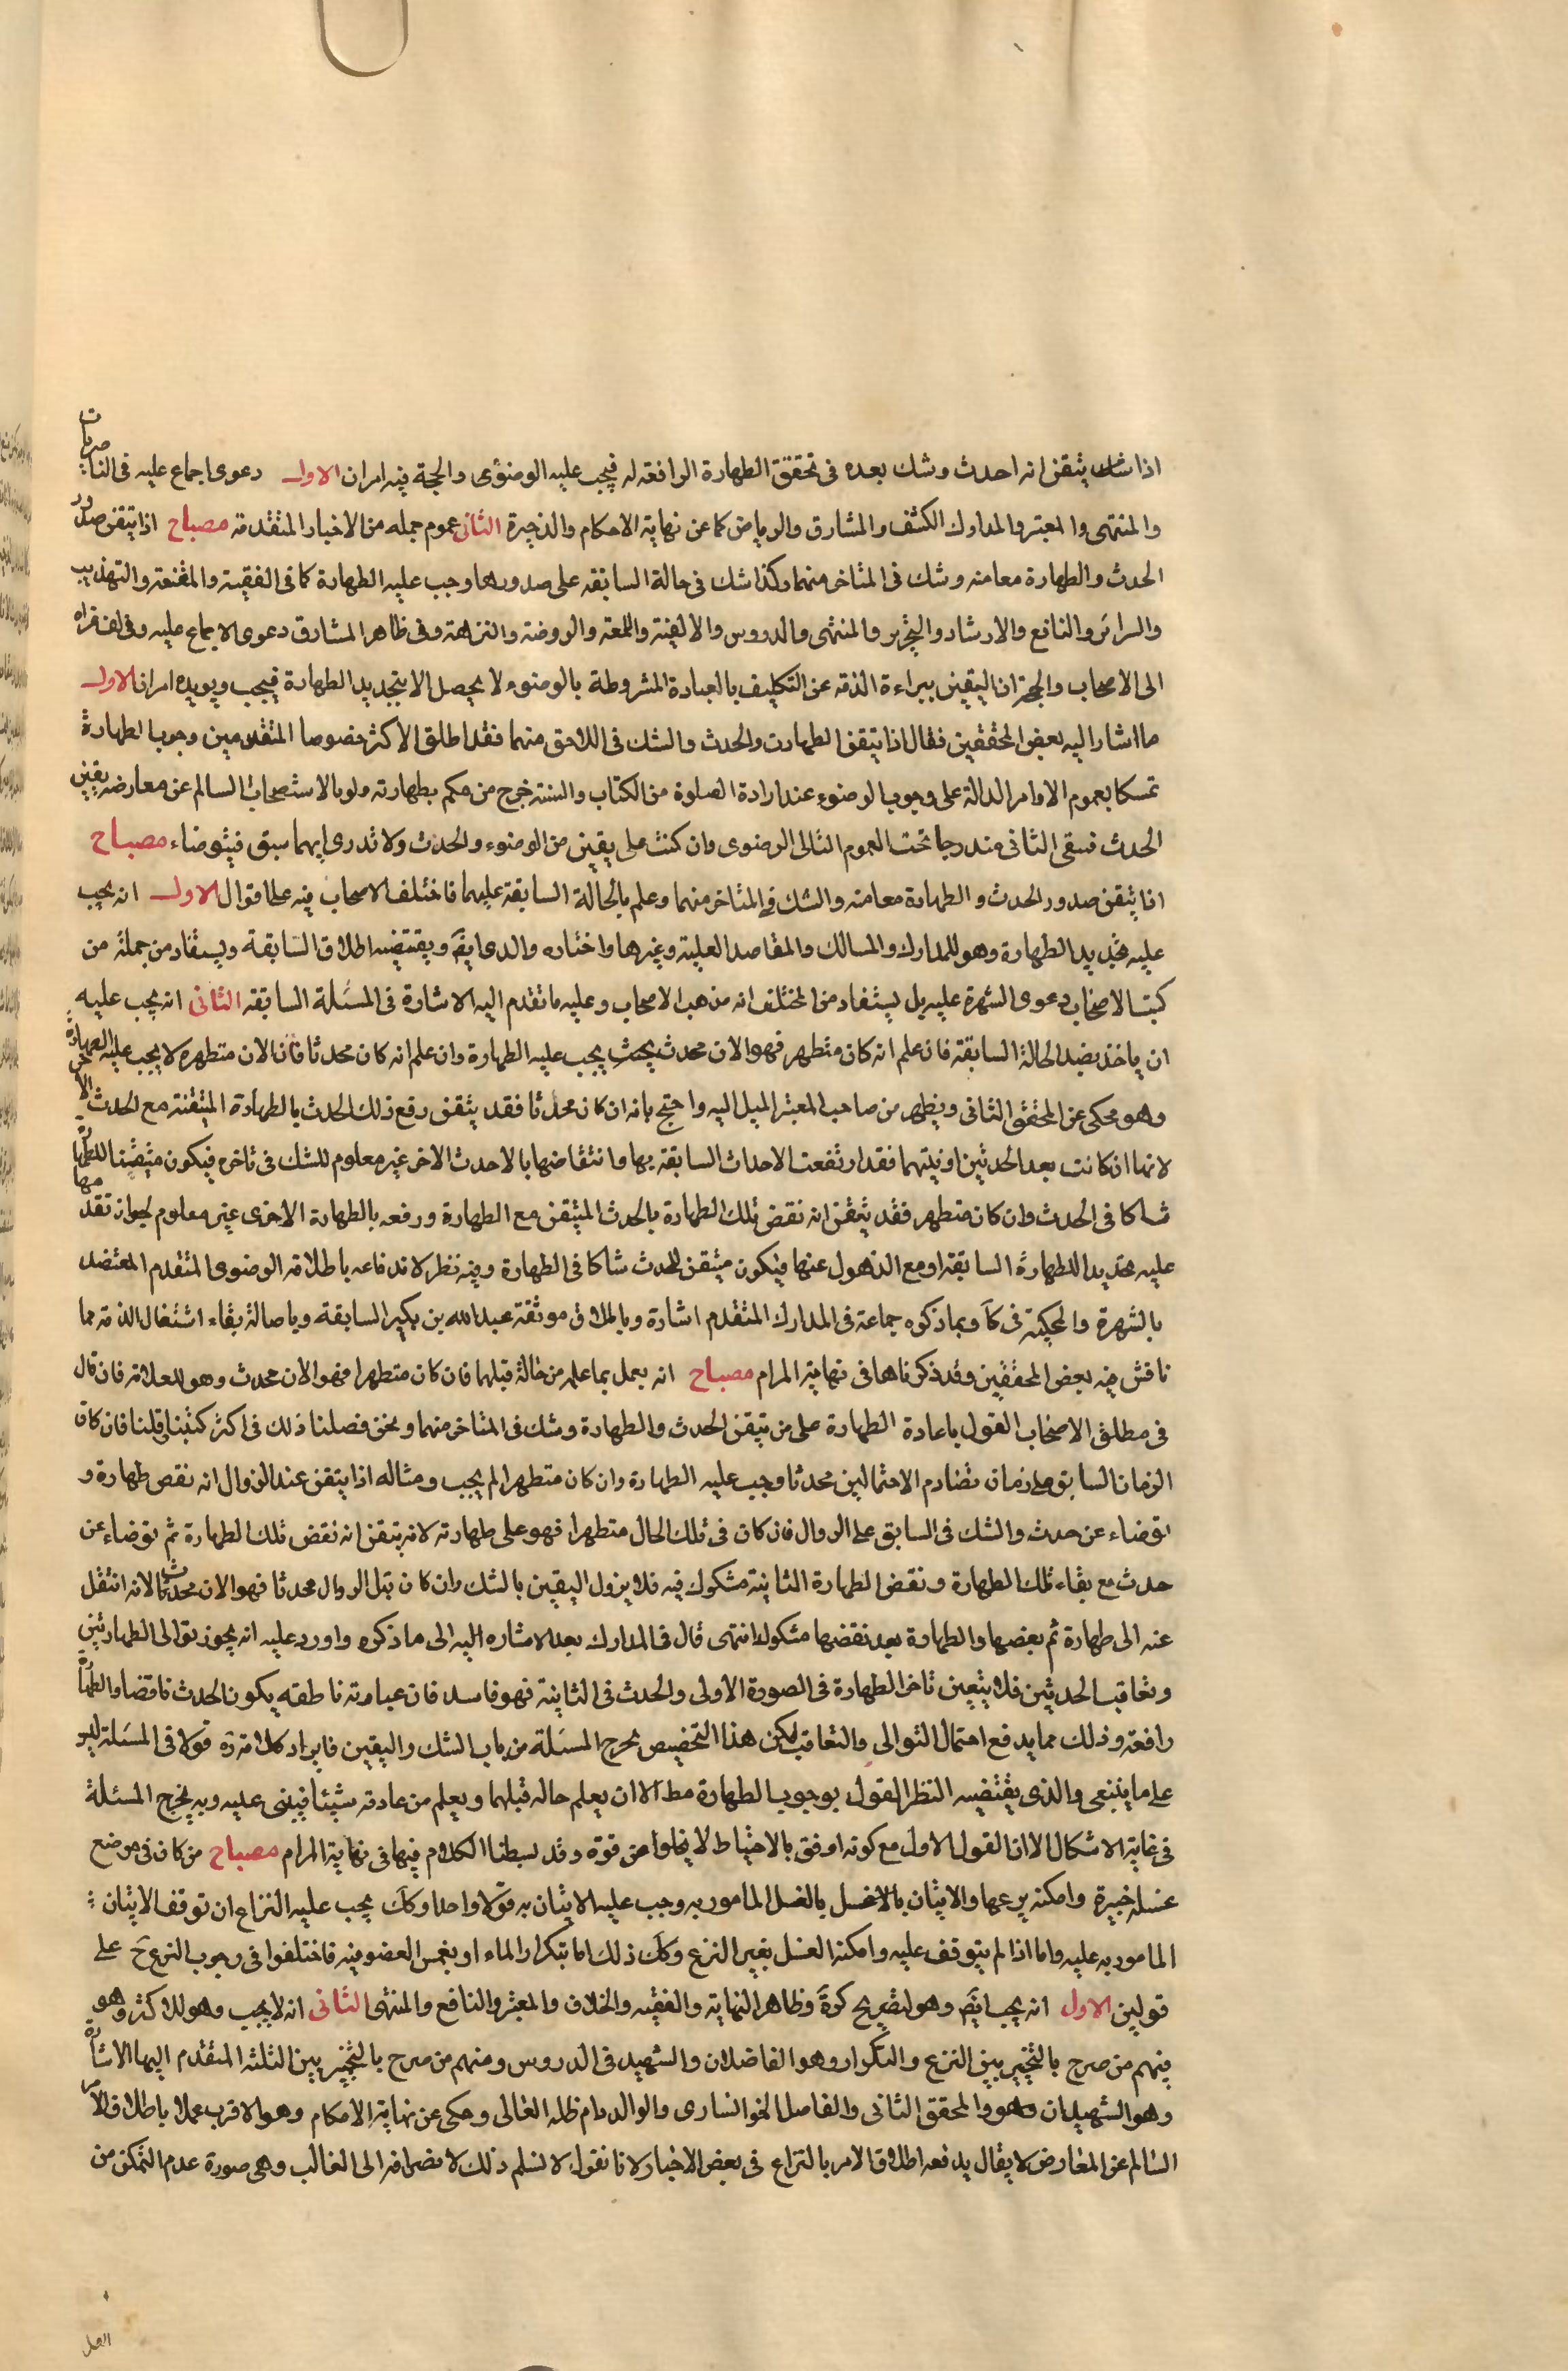 اذا شك يتقن انه احدث وشك بعده فى تحقق الطهارة الرافعة له فيجب عليه الوضوء والحجة فيه امران الاول دعوى اجماع عليه فى الناصريات
والمنتهى والمعتبر والمدارك الكشف والمشارق والرياض كما عن نهاية الاحكام والذخيرة الثانى عموم جمله من الاخبار المتقدمة مصباح اذا تيقن صدور
الحدث والطهارة معا منه وشك فى المتاخر منهما وكذا شك فى حالة السابقه على صدورهما وجب عليه الطهارة كما فى الفقيه والمقنعة والتهذيب
والسرائر والنافع والارشاد والتحرير والمنتهى والدروس والالفية واللمعة والروضة والنزهة وفى ظاهر المشارق دعوى الاجماع عليه وفى لف عزاه
الى الاصحاب والحجة ان اليقين ببراءة الذمة عن التكليف بالعبادة المشروطة بالوضوء لا يحصل الا بتجديد الطهارة فيجب ويويده امران الاول
ما اشار اليه بعض المحققين فقال اذا تيقن الطهارت والحدث والشك فى اللاحق منهما فقد اطلق الاكثر خصوصا المتقدمين وجوب الطهارة
تمسكا بعموم الاوامر الدالة على وجوب الوضوء عند ارادة الصلوة من الكتاب والسنة خرج من حكم بطهارته ولو بالاستصحاب السالم عن معارضه يقين
الحدث فبقى الثانى مندرجا تحت العموم الثانى الرضوى وان كنت على يقين من الوضوء والحدث ولا تدرى ايهما سبق فتوضاء مصباح
اذا يتقن صدور الحدث والطهارة معا منه والشك فى المتاخر منهما وعلم بالحالة السابقة عليهما فاختلف الاصحاب فيه على اقوال الاول انه يجب
عليه تجديد الطهارة وهو للمدارك والمسالك والمقاصد العلية وغيرها واختاره والدى ايضَ ويقتضيه اطلاق السابقة ويستفاد من جملة من
كتب الاصحاب دعوى الشهرة عليه بل يستفاد من المختلف انه مذهب الاصحاب وعليه ما تقدم اليه الاشارة فى المسئلة السابقه الثانى انه يجب عليه
ان ياخذ بضد الحالة السابقة فان علم انه كان متطهر فهو الان محدث يجب عليه الطهارة وان علم انه كان محدثا فان الان متطهر لا يجب عليه الطهارة
وهو محكى عن المحقق الثانى ويظهر من صاحب المعتبر الميل اليه واحتج بانه ان كان محدثا فقد يتقن رفع ذلك الحدث بالطهارة المتيقنة مع الحدث الاخر
لانها ان كانت بعد الحدثين او بينهما فقد ارتفعت الاحداث السابقة بها وانتقاضها بالاحدث الاخر غير معلوم للشك فى تاخره فيكون متيقنا للطهارة
شاكا فى الحدث وان كان متطهر فقد يتقن انه نقض تلك الطهارة بالحدث المتيقن مع الطهارة ورفعه بالطهارة الاخرى غير معلوم لجواز تقدمها
عليه تجديد الطهارة السابقة او مع الذهول عنها فيكون متيقن للحدث شاكا فى الطهارة وفيه نظر لاندفاعه باطلاقه الرضوى المتقدم المعتضد
بالشهرة والمحكية فى كَ وبما ذكره جماعة فى المدارك المتقدم اشارة وباطلاق موثقة عبد الله بن بكير السابقة وباصالة بقاء اشتغال الذمة مما
ناقش فيه بعض المحققين وقد ذكرناها فى نهاية المرام مصباح انه يعمل بما علم من حالة قبلهما فان كان متطهرا فهو الان محدث وهو للعلامة فان قال
فى مطلق الاصحاب القول باعادة الطهارة على من تيقن الحدث والطهارة وشك فى المتاخر منهما ونحن فصلنا ذلك فى اكثر كتبنا وقلنا فان كان
الزمان السابق على زمان تضادم الاحتمالين محدثا وجب عليه الطهارة وان كان متطهرا لم يجب ومثاله اذا يتقن عند الزوال انه نقص طهارة و
توضاء عن حدث والشك فى السابق على الزوال فان كان فى تلك الحال متطهرا فهو على طهارته لانه يتقن انه نقض تلك الطهارة ثم توضاء عن
حدث مع بقاء تلك الطهارة ونقض الطهارة الثانية مشكوك فيه فلا يزول اليقين بالشك وان كان قبل الزوال محدثا فهو الان محدث لانه انتقل
عنه الى طهارة ثم بعضها والطهارة بعد نقضها مشكوك انتهى قال فى المدارك بعد الاشاره اليه الى ما ذكره واورد عليه انه يجوز توالى الطهارتين
وتعاقب الحدثين فلا يتعين تاخر الطهارة فى الصورة الاولى والحدث فى الثانية فهو فاسد فان عبارته ناطقه بكون الحدث ناقضا والطهارة
رافعة وذلك مما يدفع احتمال التوالى والتعاقب لكن هذا التخصيص يخرج المسئلة من باب الشك واليقين فايراد كلامه رَه قولا فى المسئلة ليس
على ما ينبغى والذى يقتضيه النظر القول بوجوب الطهارة مط الا ان يعلم حاله قبلهما ويعلم من عادته شيئا فيبنى عليه وبه يخرج المسئلة
فى غاية الاشكال الا ان القول الاول مع كونه اوفق بالاحتياط لا يخلوا من قوة وقد بسطنا الكلام فيها فى نهاية المرام مصباح من كان فى موضع
غسله جبيرة وامكنه نزعها والاتيان بالاغسل بالغسل المامور به وجب عليه الاتيان به قولا واحدا وكك يجب عليه النزاع ان توقف الاتيان
المامور به عليه واما اذا لم يتوقف عليه وامكنه الغسل بغير النزع وكك ذلك اما بتكرار الماء او بغمس العضو فيه فاختلفوا فى وجوب النزع حَ على
قولين الاول انه يجب ايضَ وهو لتصريح كرة وظاهر النهاية والفقيه والخلاف والمعتبر والنافع والمنتهى الثانى انه لا يجب وهو للاكثر وهو
فمنهم من صرح بالتخيير بين النزع والتكرار وهو الفاضلان والشهيد فى الدروس ومنهم من صرح بالتخيير بين الثلثه المتقدم اليها الاشارة
وهو الشهيدان وهو والمحقق الثانى والفاضل الخوانسارى والوالد دام ظله العالى وحكى عن نهاية الاحكام وهو الاقرب عملا باطلاق الامر
السالم عن المعارض لا يقال يدفعه اطلاق الامر بالنزاع فى بعض الاخبار لانا نقول لا نسلم ذلك لانصرافه الى الغالب وهى صورة عدم التمكن من
الغسل